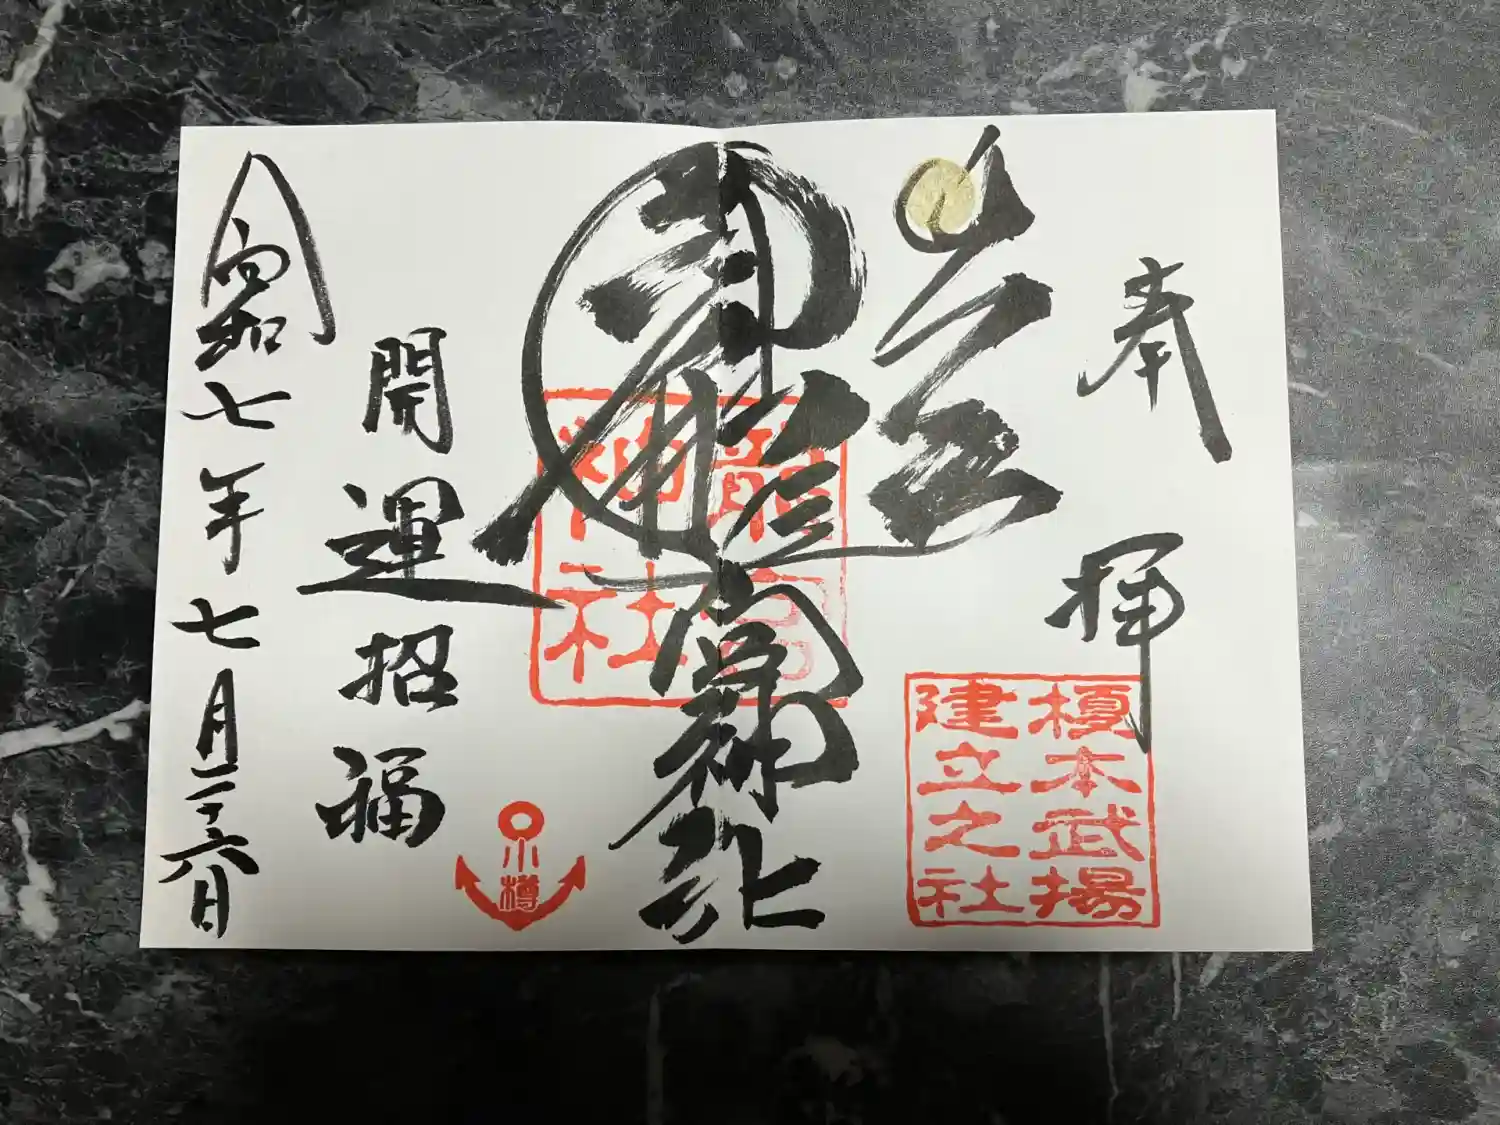 奉拝
榎本武揚
建立之社
龍宮神社
龍宮
神社
開運招福
小樽
令和七年七月二十六日